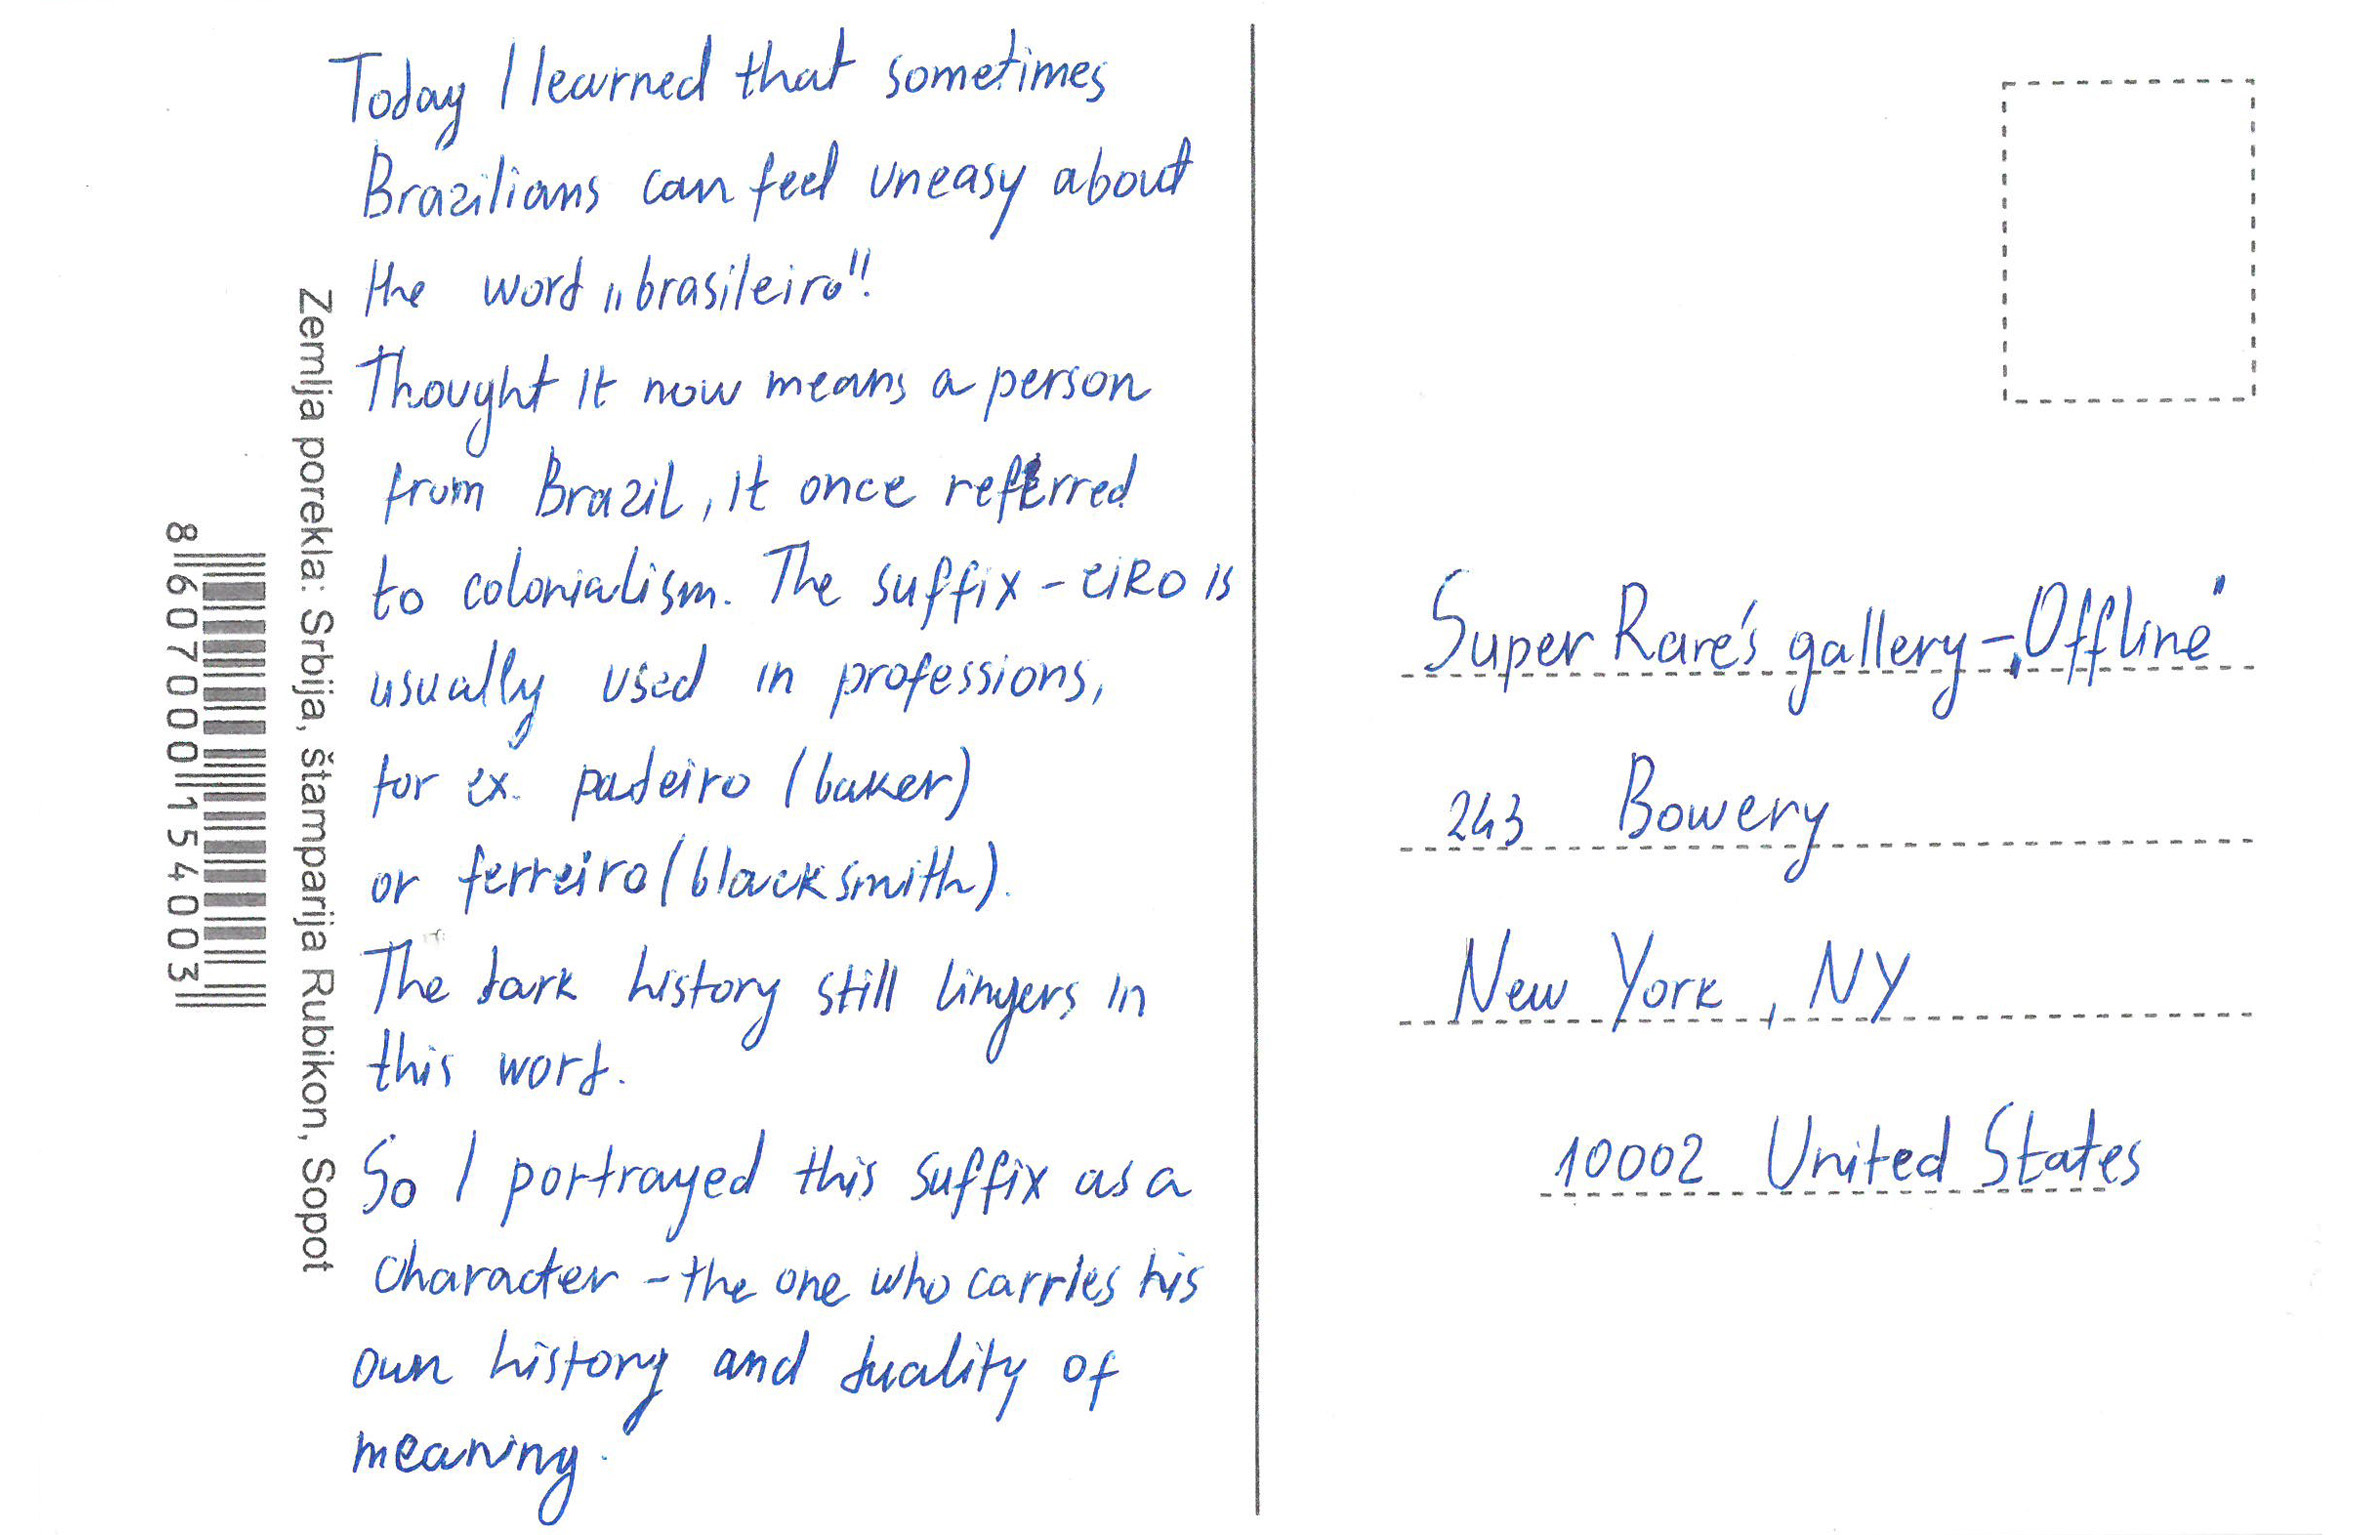 Today I learned that sometimes
Brazilians can feel uneasy about
the word „brasileiro"!
Thought It now means a person
from Brazil, It once referred
to colonialism. The suffix - EIRO is
usually used in professions,
for ex. padeiro (baker)
or ferreiro (blacksmith).
The dark history still lingers in
this word.
So I portrayed this suffix as a
character - the one who carries his
own history and duality of
meaning.
Zemlja porekla: Srbija, štamparija Rubikon, Sopot
8 607000 154003
Super Rare's gallery - „Offline"
243 Bowery
New York, NY
10002 United States